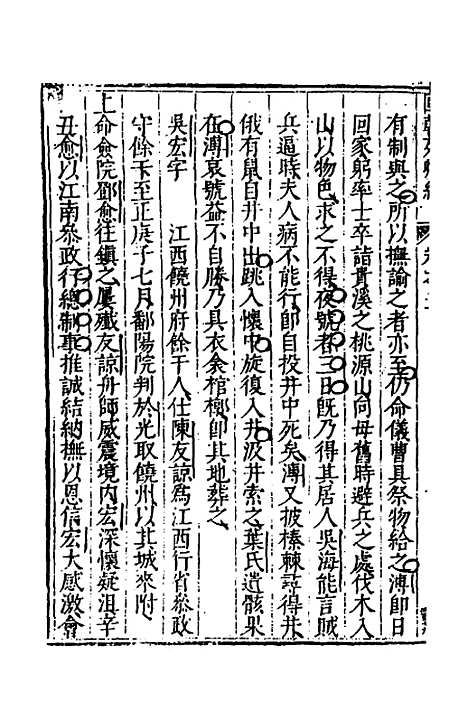 有制與之所以撫諭之者亦至仍命儀曹具祭物給之溥即日
回家躬率士卒詣貴溪之桃源山向母舊時避兵之處伐木入
山以物色求之不得夜號者三日旣乃得其居人吳海能言賊
兵逼時夫人病不能行即自投井中死矣溥又披榛棘尋得井
俄有鼠自井中出跳入懷中旋復入井汲井索之葉氏遺骸果
在溥哀號益不自勝乃具衣衾棺槨即其地葬之
吳宏字　江西饒州府餘干人仕陳友諒爲江西行省叅政
守餘干至正庚子七月鄱陽院判於光取饒州以其城來附
上命僉院鄧愈往鎮之屢殲友諒舟師威震境內宏深懷疑沮辛
丑愈以江南叅政行總制事推誠結納撫以恩信宏大感激會